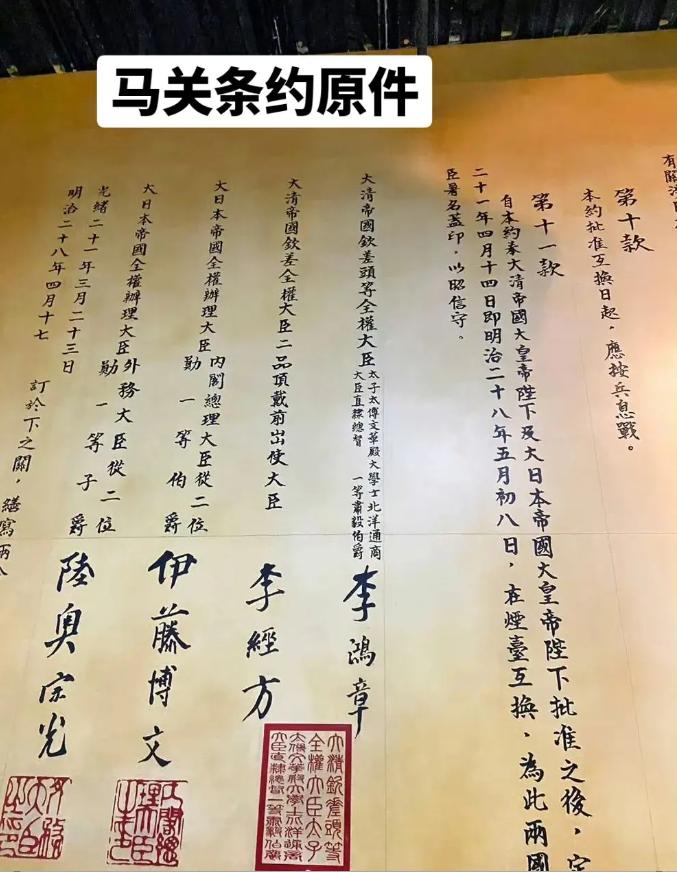 马关条约原件
有關
第十款
本約批准互換日起，應按兵息戰。
第十一款
自本約奉大清帝國大皇帝陛下及大日本帝國大皇帝陛下批准之後，定
二十一年四月十四日即明治二十八年五月初八日，在煙臺互換，為此兩國
臣署名蓋印，以昭信守。
大清帝國欽差頭等全權大臣太子太傅文華殿大學士北洋通商
大臣直隸總督 一等肅毅伯爵
李鴻章
大清帝國欽差全權大臣二品頂戴前出使大臣
李經方
大日本帝國全權辦理大臣內閣總理大臣從二位
勳一等伯爵
伊藤博文
大日本帝國全權辦理大臣外務大臣從二位
勳一等子爵
陸奧宗光
光緒二十一年三月二十三日
明治二十八年四月十七
訂於下之關，繕寫兩
大清欽差頭等
全權大臣太子